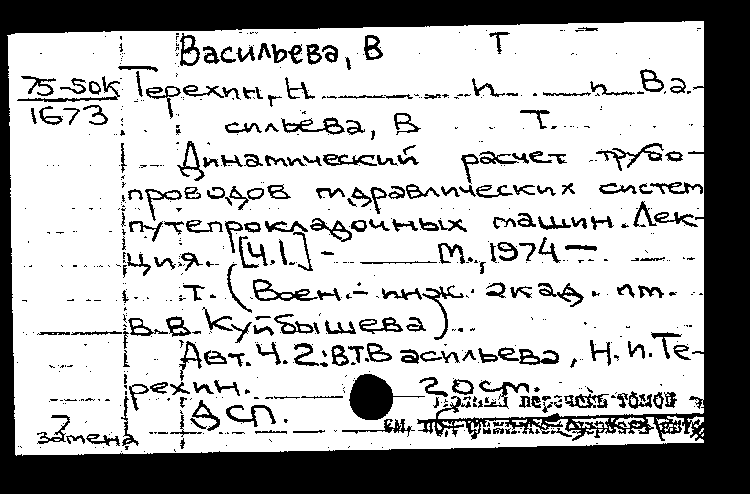 Васильева, В Т
75-50к
1673
Терехин, Н п п Ва-
сильева, В Т.
Динамический расчет трубо-
проводов гидравлических систем
путепрокладочных машин. Лек-
ция. [Ч.1.] - М., 1974 —
т. (Воен.-инж. акад. им.
В.В. Куйбышева)..
Авт. Ч. 2: В.Т. Васильева, Н.п. Те-
рехин.
ДСП.
замена
Полный перечень томов
см. под